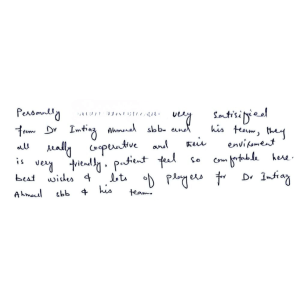 Personally very Satisified
from Dr Imtiaz Ahmad sbb and his team, they
all really cooperative and their envirment
is very friendly, patient feel so comfortable here.
best wishes & lots of prayers for Dr Imtiaz
Ahmad sbb & his team